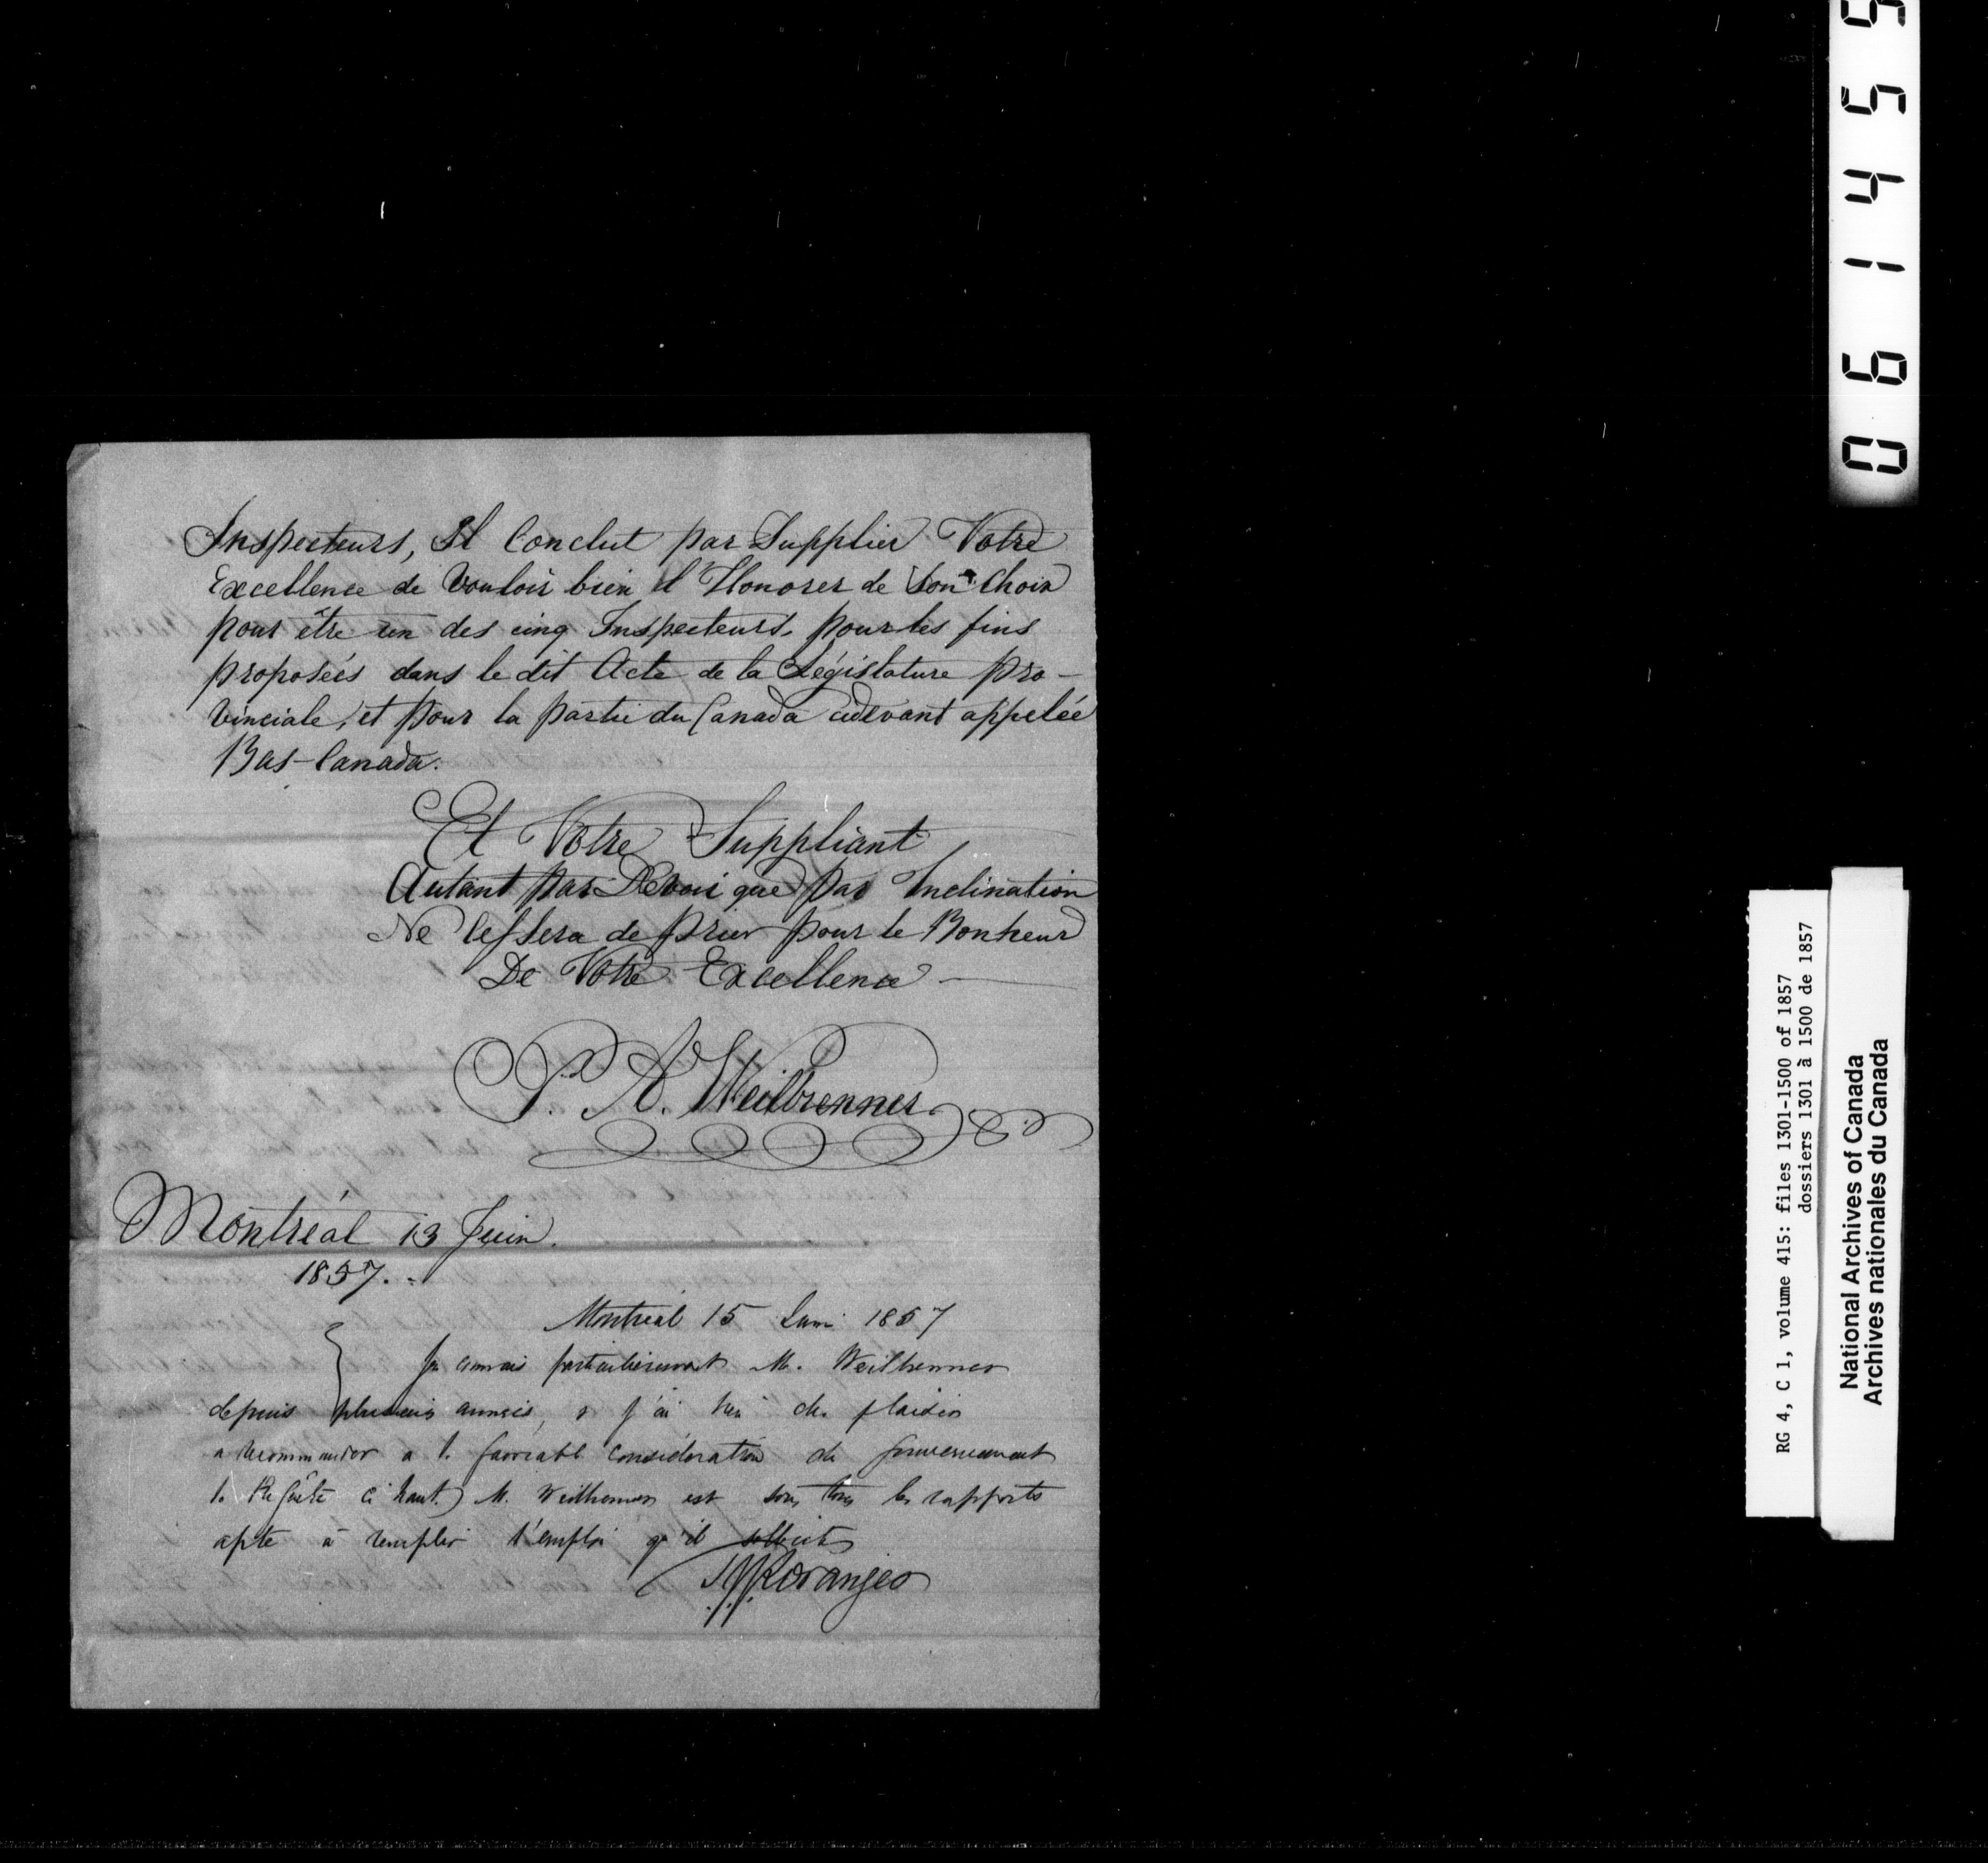 Inspecteurs, Il Conclut par Supplier Votre
Excellence de Vouloir bien l'Honorer de Son Choix
pour être un des cinq Inspecteurs, pour les fins
proposées dans le dit Acte de la Législature pro-
vinciale, et pour la partie du Canada cidevant appelée
Bas-Canada.
Et Votre Suppliant
Autant par Devoir que par Inclination
Ne Cessera de prier pour le Bonheur
De Votre Excellence
P. A. Weilbrenner
Montréal 13 Juin
1857.
Montreal 15 Juin 1857
Je connais particulièrement M. Weilbrenner
depuis plusieurs années, & j'ai du plaisir
a recommander a la favorable considération du gouvernement
la Requête ci haut. M. Weilbrenner est sous tous les rapports
apte à remplir l'emploi qu'il sollicite
Loranger
061455
RG 4, C 1, volume 415: files 1301-1500 of 1857
dossiers 1301 à 1500 de 1857
National Archives of Canada
Archives nationales du Canada